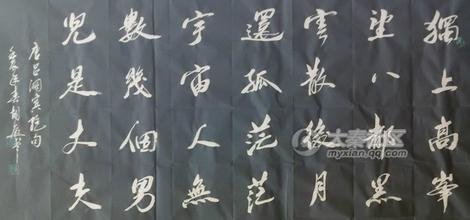 獨上高峯
望八都黑
雲散後月
還孤茫茫
宇宙人無
數幾個男
兒是丈夫
唐呂洞賓詩句
大秦社区
myxian.qq.com